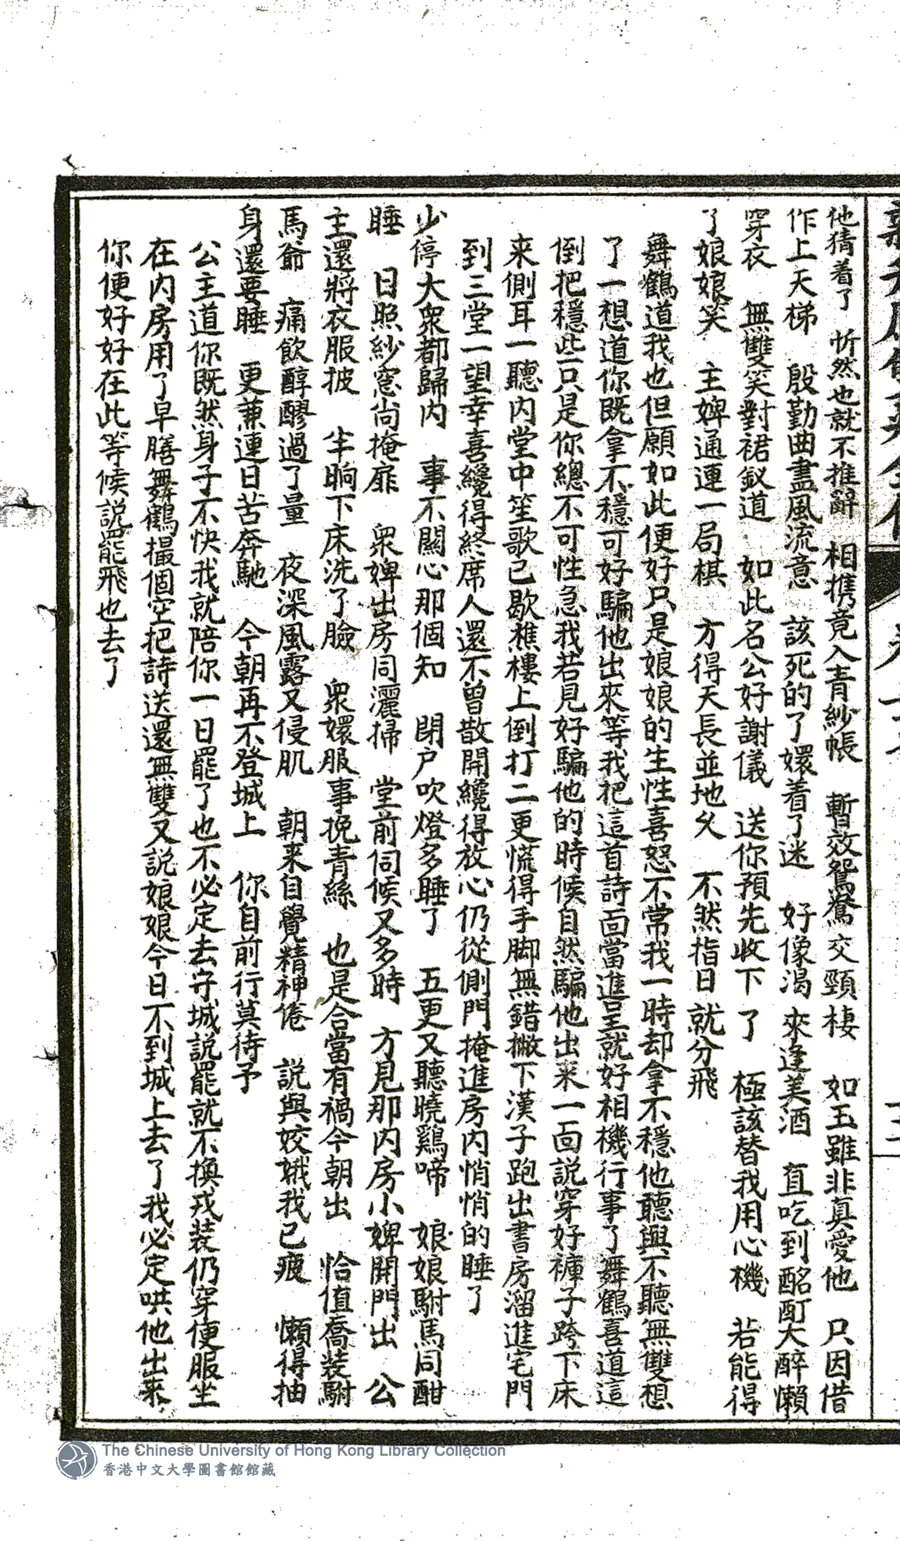 他猜着了　忻然也就不推辭　相携竟入青紗帳　暫效鴛鴦交頸棲　如玉雖非真愛他　只因借
作上天梯　殷勤曲盡風流意　該死的了嬛着了迷　好像渴來逢美酒　直吃到酩酊大醉懶
穿衣　無雙笑對裙釵道　如此名公好謝儀　送你預先收下了　極該替我用心機　若能得
了娘娘笑　主婢通連一局棋　方得天長並地久　不然指日就分飛
舞鶴道我也但願如此便好只是娘娘的生性喜怒不常我一時却拿不穩他聽與不聽無雙想
了一想道你既拿不穩可好騙他出來等我把這首詩面當進呈就好相機行事了舞鶴喜道這
倒把穩些只是你總不可性急我若見好騙他的時候自然騙他出來一面說穿好褲子跨下床
來側耳一聽內堂中笙歌已歇樵樓上倒打二更慌得手脚無錯撇下漢子跑出書房溜進宅門
到三堂一望幸喜纔得終席人還不曾散開纔得放心仍從側門掩進房內悄悄的睡了
少停大衆都歸內　事不關心那個知　閉户吹燈多睡了　五更又聽曉鷄啼　娘娘駙馬同酣
睡　日照紗窓尚掩扉　衆婢出房同灑掃　堂前伺候又多時　方見那內房小婢開門出　公
主還將衣服披　半晌下床洗了臉　衆嬛服事挽青絲　也是合當有禍今朝出　恰值喬裝駙
馬爺　痛飲醇醪過了量　夜深風露又侵肌　朝来自覺精神倦　說與姣娥我已疲　懶得抽
身還要睡　更兼連日苦奔馳　今朝再不登城上　你自前行莫待予
公主道你既然身子不快我就陪你一日罷了也不必定去守城說罷就不換戎装仍穿便服坐
在內房用了早膳舞鶴撮個空把詩送還無雙又説娘娘今日不到城上去了我必定哄他出來
你便好好在此等候説罷飛也去了
The Chinese University of Hong Kong Library Collection
香港中文大學圖書館館藏